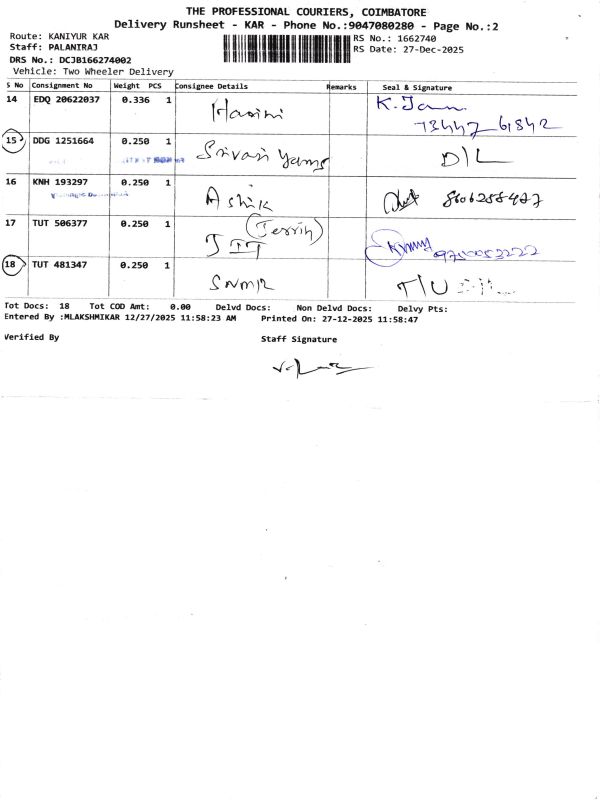 THE PROFESSIONAL COURIERS, COIMBATORE
Delivery Runsheet - KAR - Phone No.:9047080280 - Page No.:2
Route: KANIYUR KAR
RS No.: 1662740
Staff: PALANIRAJ
RS Date: 27-Dec-2025
DRS No.: DCJB166274002
Vehicle: Two Wheeler Delivery
S No Consignment No Weight PCS Consignee Details Remarks Seal & Signature
14 EDQ 20622037 0.336 1 Harini K.
15 DDG 1251664 0.250 1 Srivari D/L
16 KNH 193297 0.250 1 Ashik
17 TUT 506377 0.250 1 (Jerrin)
18 TUT 481347 0.250 1 SNMR
Tot Docs: 18 Tot COD Amt: 0.00 Delvd Docs: Non Delvd Docs: Delvy Pts:
Entered By :MLAKSHMIKAR 12/27/2025 11:58:23 AM Printed On: 27-12-2025 11:58:47
Verified By Staff Signature